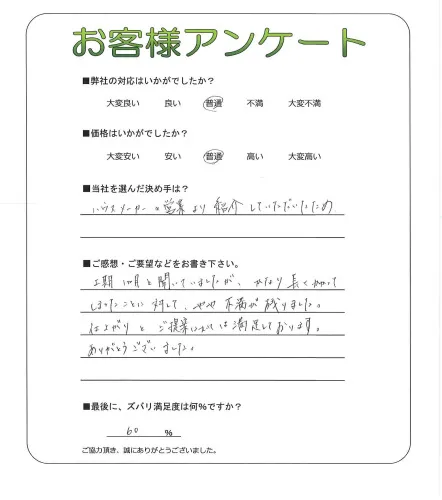 お客様アンケート
■弊社の対応はいかがでしたか？
大変良い 良い 普通 不満 大変不満
■価格はいかがでしたか？
大変安い 安い 普通 高い 大変高い
■当社を選んだ決め手は？
ハウスメーカーの営業より紹介していただいたため
■ご感想・ご要望などをお書き下さい。
工期1ヶ月と聞いていましたが、かなり長くかかって
しまったことに対して、やや不満が残りました。
仕上がりとご提案については満足しております。
ありがとうございました。
■最後に、ズバリ満足度は何%ですか？
60 %
ご協力頂き、誠にありがとうございました。